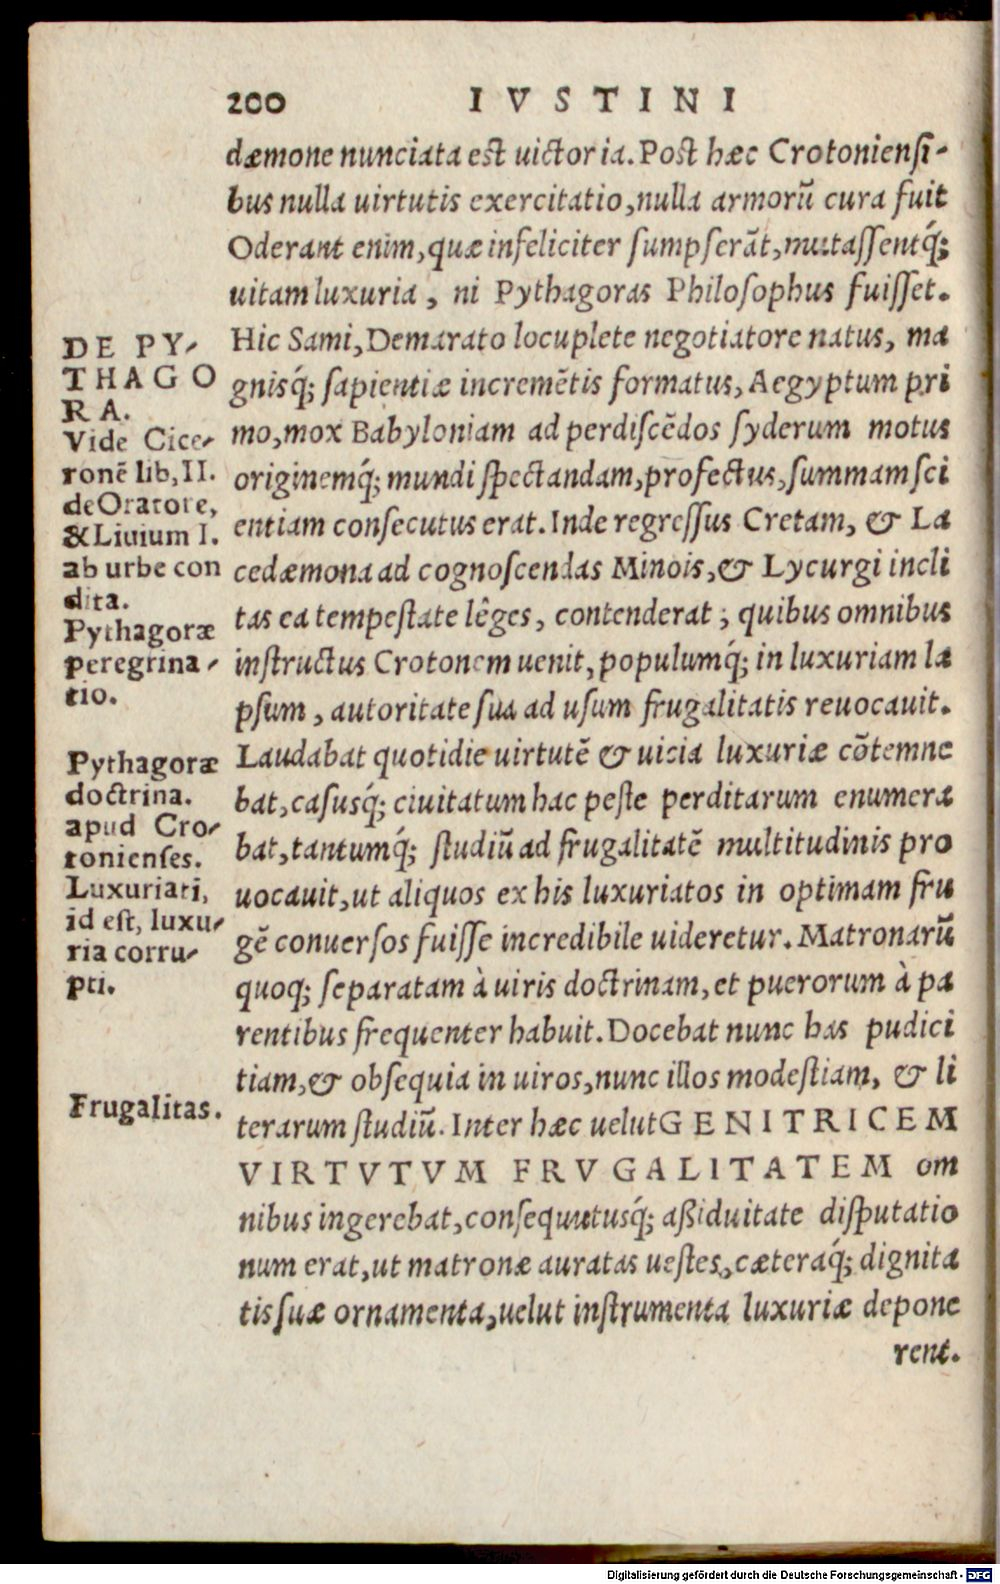 200 IVSTINI
dæmone nunciata est uictoria. Post hæc Crotoniensi-
bus nulla uirtutis exercitatio, nulla armorũ cura fuit
Oderant enim, quæ infeliciter sumpserãt, mutassentq́;
uitam luxuria, ni Pythagoras Philosophus fuisset.
Hic Sami, Demarato locuplete negotiatore natus, ma
gnisq́; sapientiæ incremẽtis formatus, Aegyptum pri
mo, mox Babyloniam ad perdiscẽdos syderum motus
originemq́; mundi spectandam, profectus, summam sci
entiam consecutus erat. Inde regressus Cretam, & La
cedæmona ad cognoscendas Minois, & Lycurgi incli
tas ea tempestate lêges, contenderat; quibus omnibus
instructus Crotonem uenit, populumq́; in luxuriam la
psum, autoritate sua ad usum frugalitatis reuocauit.
Laudabat quotidie uirtutẽ & uicia luxuriæ cõtemne
bat, casusq́; ciuitatum hac peste perditarum enumera
bat, tantumq́; studiũ ad frugalitatẽ multitudinis pro
uocauit, ut aliquos ex his luxuriatos in optimam fru
gẽ conuersos fuisse incredibile uideretur. Matronarũ
quoq; separatam à uiris doctrinam, et puerorum à pa
rentibus frequenter habuit. Docebat nunc has pudici
tiam, & obsequia in uiros, nunc illos modestiam, & li
terarum studiũ. Inter hæc uelut GENITRICEM
VIRTVTVM FRVGALITATEM om
nibus ingerebat, consequutusq́; aßiduitate disputatio
num erat, ut matronæ auratas uestes, cæteraq́; dignita
tis suæ ornamenta, uelut instrumenta luxuriæ depone
rent.
DE PY-
THAGO
RA.
Vide Cice-
ronẽ lib, II.
de Oratore,
& Liuium I.
ab urbe con
dita.
Pythagoræ
peregrina-
tio.
Pythagoræ
doctrina.
apud Cro-
tonienses.
Luxuriati,
id est, luxu-
ria corru-
pti.
Frugalitas.
Digitalisierung gefördert durch die Deutsche Forschungsgemeinschaft - DFG